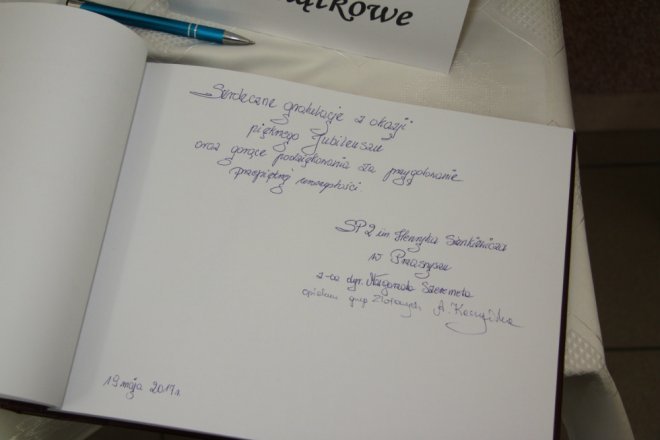 ątkowe
Serdeczne gratulacje z okazji
pięknego Jubileuszu
oraz gorące podziękowania za przygotowanie
przepięknej uroczystości.
SP 2 im. Henryka Sienkiewicza
w Przasnyszu
z-ca dyr. Małgorzata Szeremeta
opiekun grup zborowych A. Kaczyńska
19 maja 2017 r.